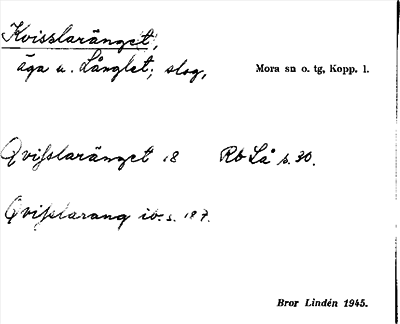 Kvisslaränget,
äga u. Långlet; slog,
Mora sn o. tg, Kopp. l.
Qvisslaränget 18 Rb Lå s. 30.
Qvisslarang ib. s. 187.
Bror Lindén 1945.